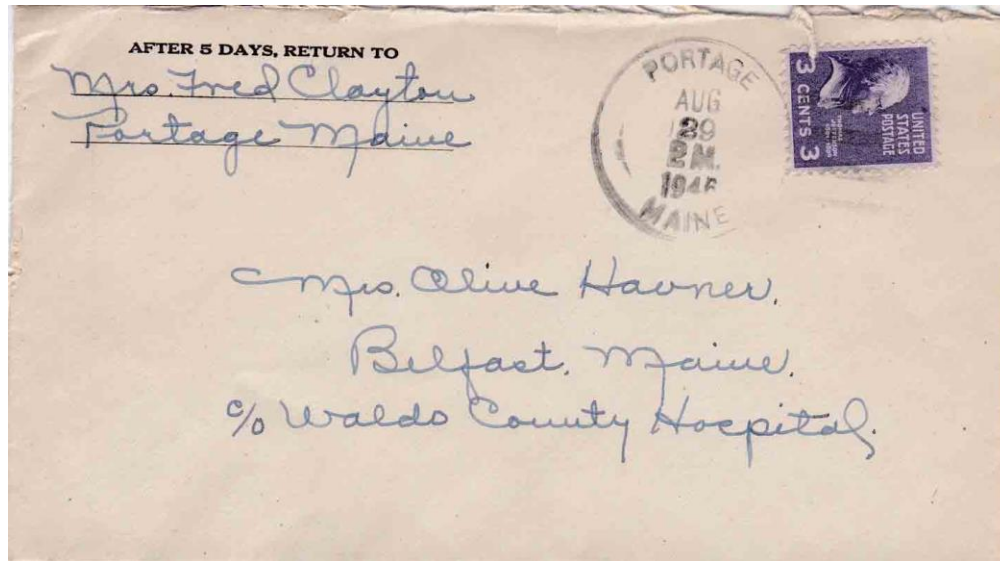 AFTER 5 DAYS, RETURN TO
Mrs. Fred Clayton
Portage Maine
PORTAGE
AUG
29
P.M.
MAINE
UNITED
STATES
POSTAGE
3 CENTS 3
Mrs. Olive
Belfast, Maine.
c/o Waldo County Hospital.